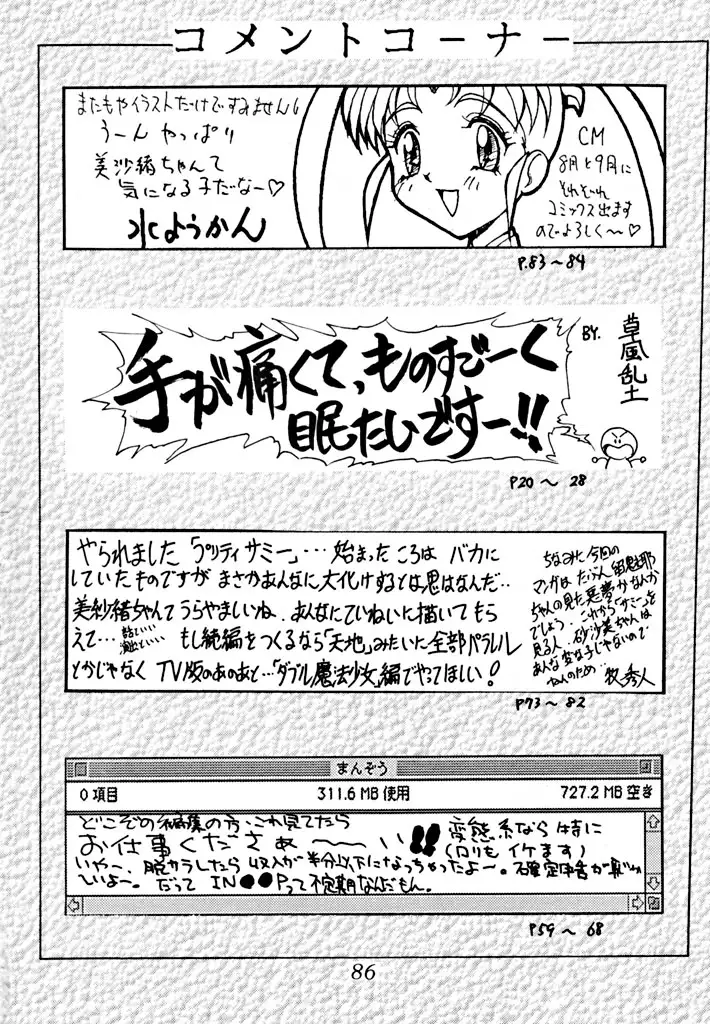 コメントコーナー
またもやイラストだけですみません
うーん やっぱり
美沙緒ちゃんて
気になる子だなー♡
水ようかん
CM
8月と9月に
それぞれ
コミックス出ます
のでよろしく〜♡
P.83〜84
手が痛くて、ものすごーく
眠たいですー!!
BY.
草風乱土
P20〜28
やられました「プリティサミー」…始まったころは バカに
していたものですが まさかあんなに大化けするとは思はなんだ‥
美紗緒ちゃんてうらやましいね、あんなにていねいに描いてもら
えて…
もし続編をつくるなら「天地」みたいた全部パラレル
とかじゃなく TV版のあのあと…「ダブル魔法少女」編でやってほしい!
ちなみに今回の
マンガは たぶん 留魅耶
ちゃんの見た悪夢かなんか
でしょう、これから「サミー」を
見る人、砂沙美ちゃんは
あんな変な子じゃないので
ねんのため‥
牧秀人
P73〜82
まんぞう
0 項目
311.6 MB 使用
727.2 MB 空き
どこぞの編集の方、これ見てたら
お仕事くださぁ〜〜い!!
変態系なら特に
(ロリもイケます)
いやー、脱サラしたら収入が半分以下になっちゃったよー。確定申告が
いよー。だって IN●●Pって不定期なんだもん。
P59〜68
86